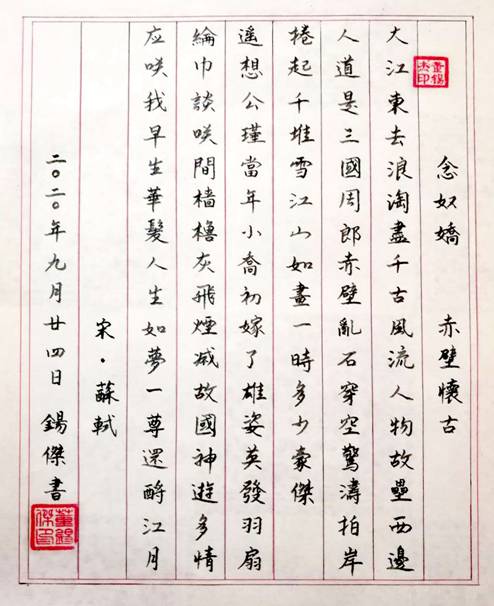 念奴嬌　赤壁懷古
董錫杰印
大江東去浪淘盡千古風流人物故壘西邊
人道是三國周郎赤壁亂石穿空驚濤拍岸
捲起千堆雪江山如畫一時多少豪傑
遥想公瑾當年小喬初嫁了雄姿英發羽扇
綸巾談咲間檣櫓灰飛煙滅故國神遊多情
应咲我早生華髮人生如夢一尊還酹江月
宋·蘓軾
二〇二〇年九月廿四日 錫傑書
董錫傑印